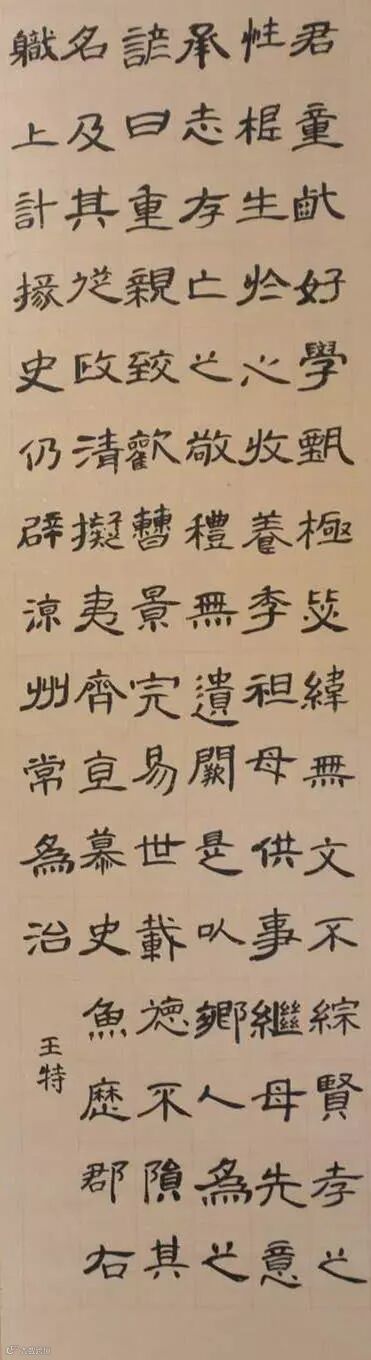 君童齔好學甄極毖緯無文不綜賢孝之
性根生於心收養季祖母供事繼母先意
承志存亡之敬禮無遺闕是以鄉人為之
諺曰重親致歡曹景完易世載德不隕其
名及其從政清擬夷齊直慕史魚歷郡右
職上計掾史仍辟涼州常為治
王特